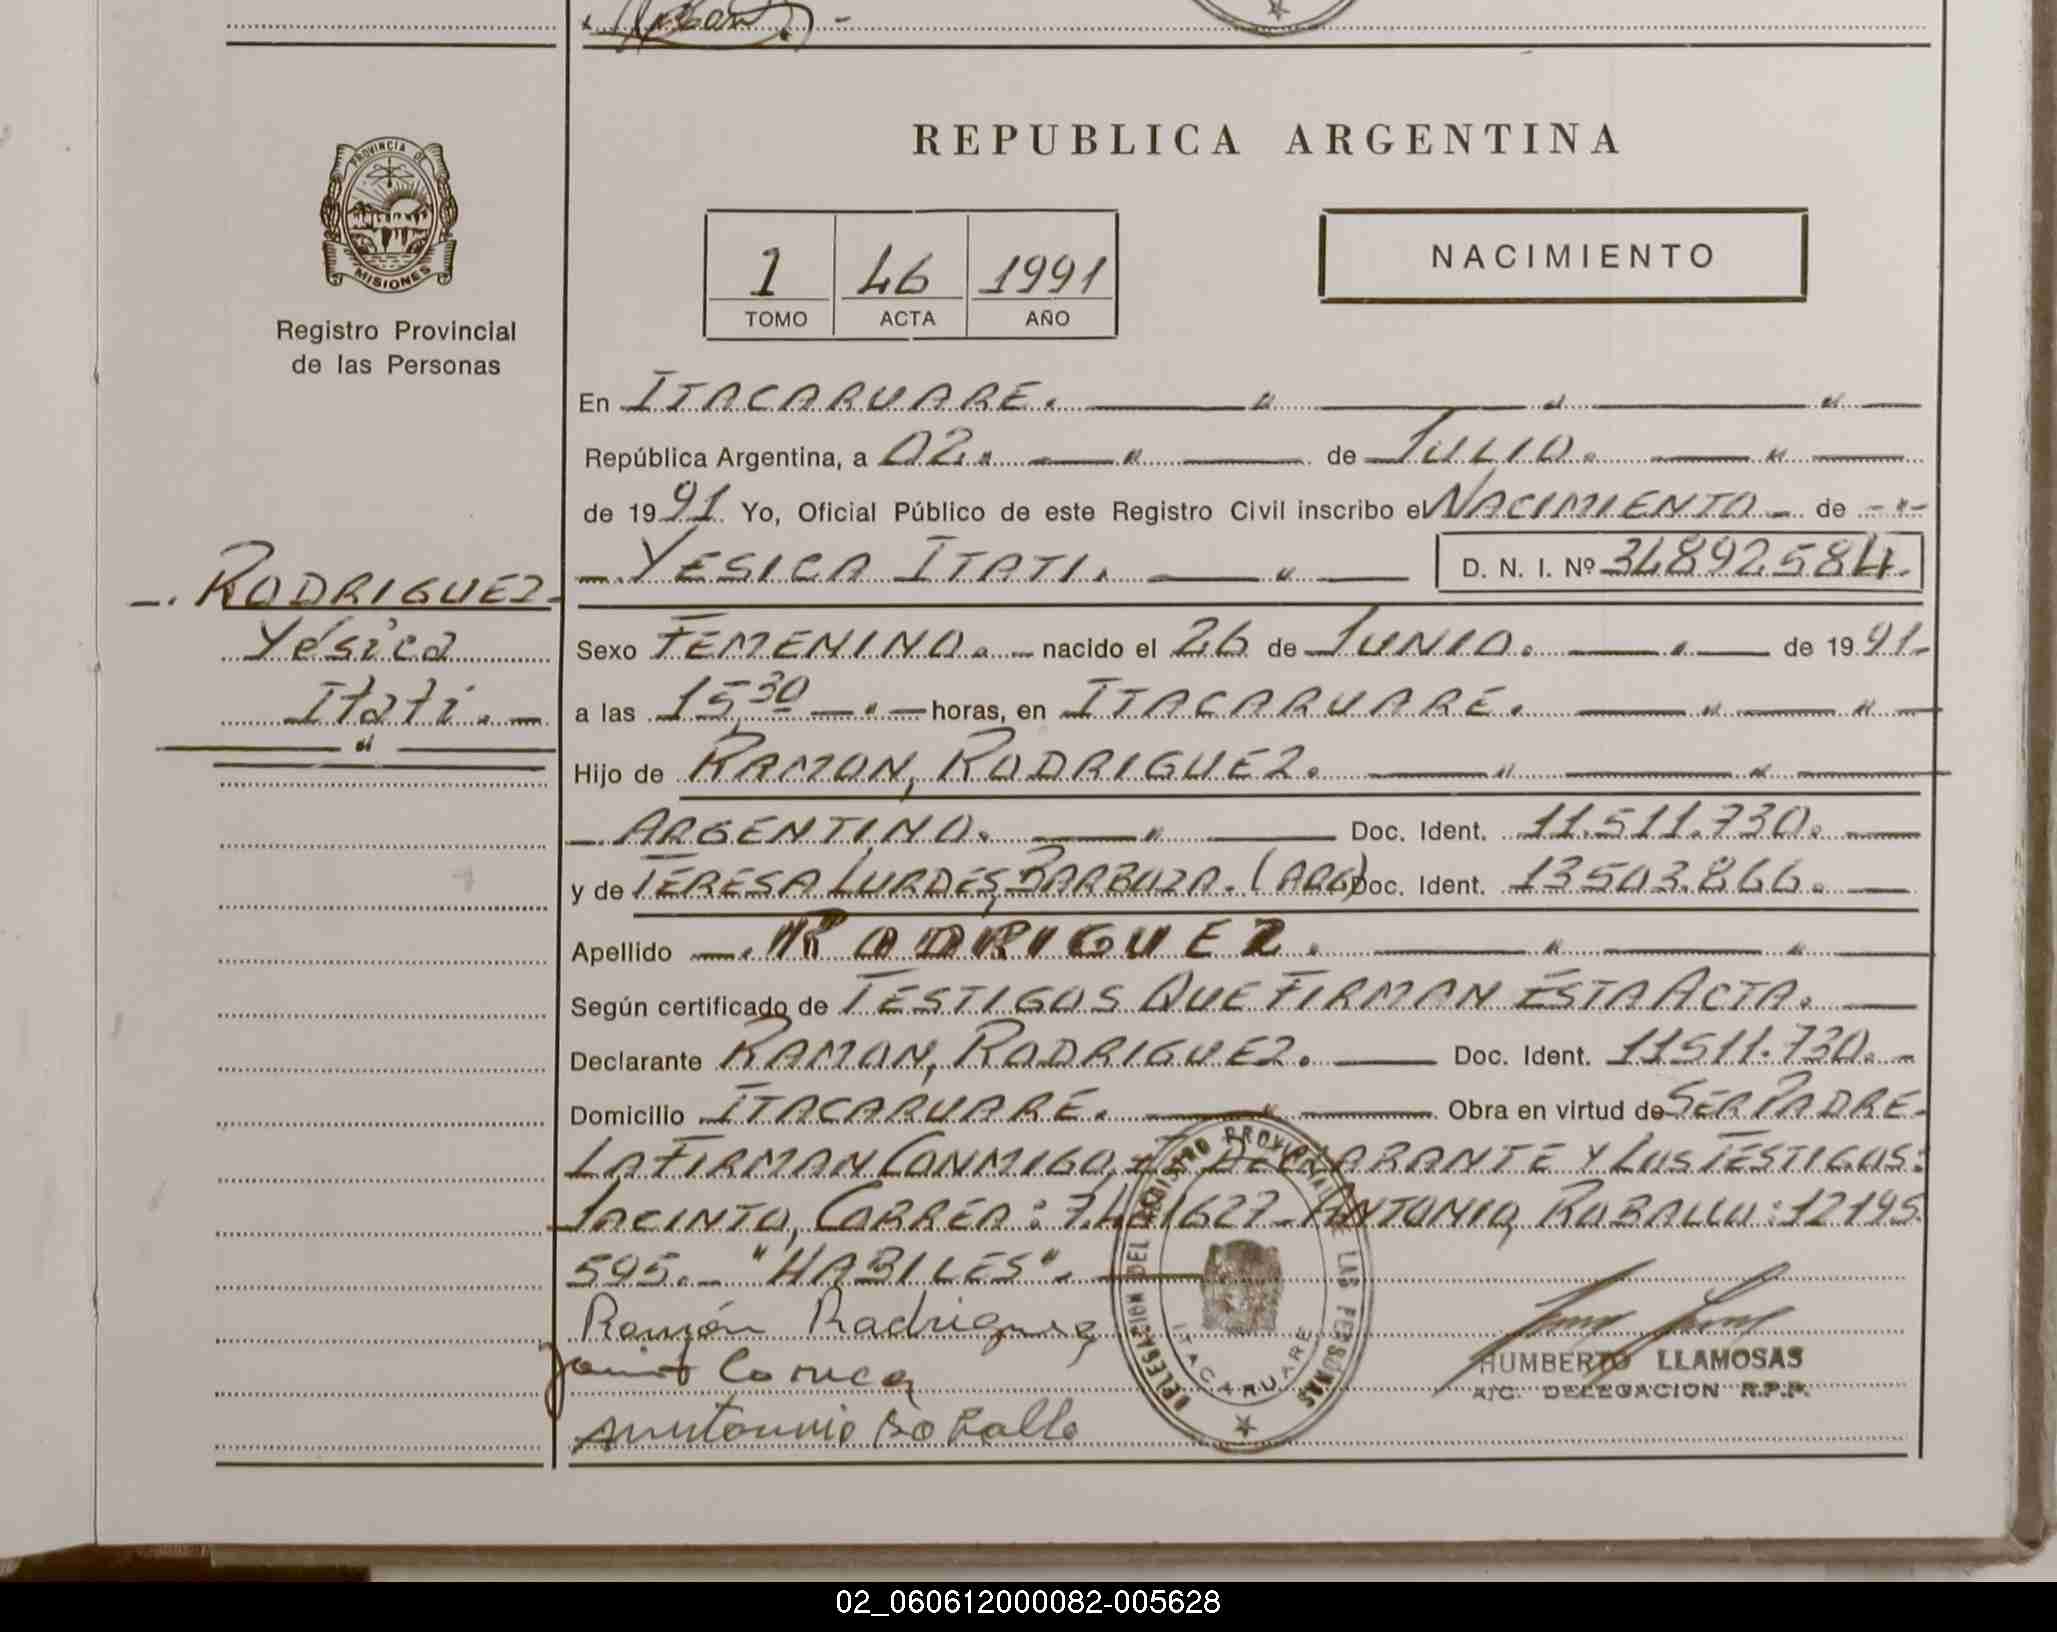 REPUBLICA ARGENTINA
PROVINCIA DE
MISIONES
Registro Provincial
de las Personas
1 46 1991
TOMO ACTA AÑO
NACIMIENTO
En ITACARUARE.
República Argentina, a 02. de JULIO.
de 1991 Yo, Oficial Público de este Registro Civil inscribo el NACIMIENTO - de
YESICA ITATI. D. N. I. Nº 34892584.
RODRIGUEZ
Yésica
Itatí.
Sexo FEMENINO. nacido el 26 de JUNIO. de 1991.
a las 15,30 horas, en ITACARUARE.
Hijo de RAMON, RODRIGUEZ.
ARGENTINO. Doc. Ident. 11.511.730.
y de TERESA LURDES, BARBOZA. (ARG) Doc. Ident. 13503.866.
Apellido RODRIGUEZ.
Según certificado de TESTIGOS QUE FIRMAN ESTA ACTA.
Declarante RAMON, RODRIGUEZ. Doc. Ident. 11511.730.
Domicilio ITACARUARE. Obra en virtud de SER PADRE.
LA FIRMAN CONMIGO, DECLARANTE Y LOS TESTIGOS:
JACINTO, CORREA: ANTONIO, ROBALLO: 12195
595. "HABILES".
Ramón Rodriguez
Correa
Roballo
DELEGACION DEL REGISTRO PROVINCIAL DE LAS PERSONAS
ITACARUARE
HUMBERTO LLAMOSAS
A/C. DELEGACION R.P.P.
02_060612000082-005628